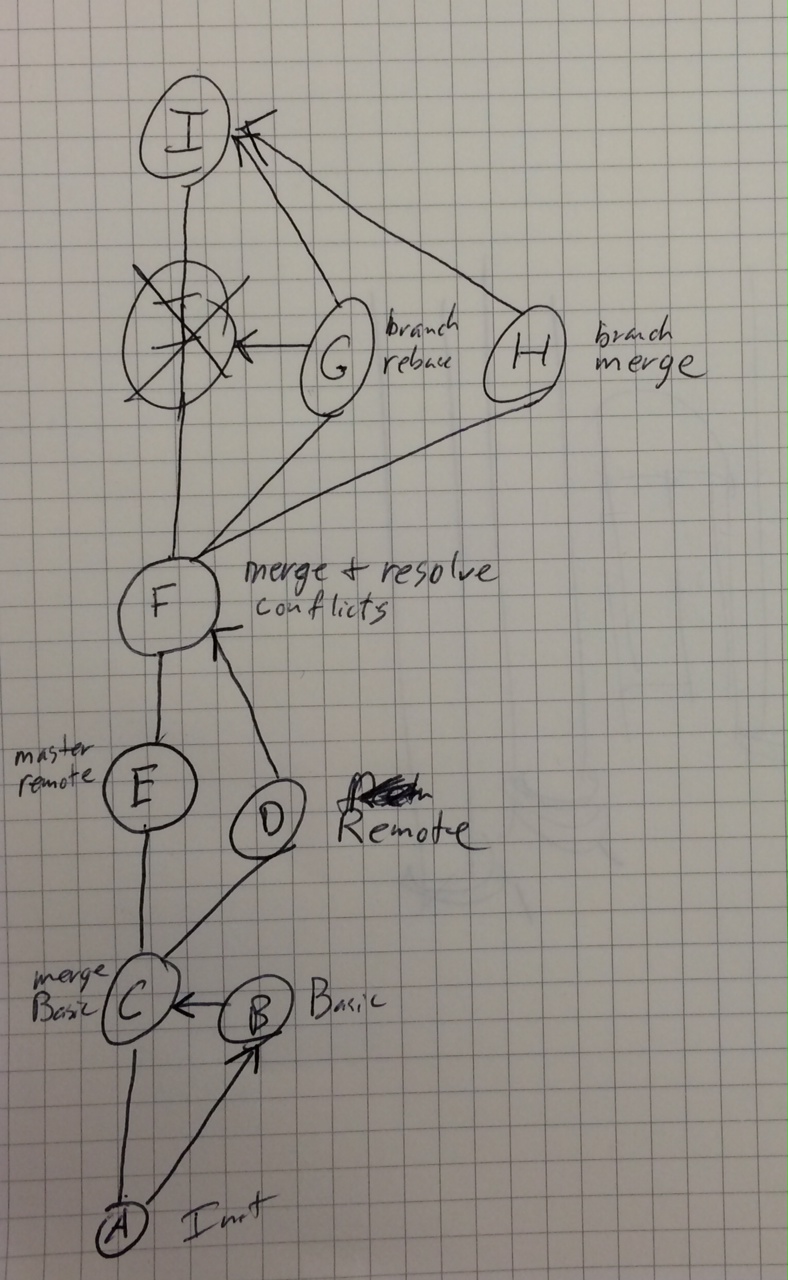 I
I
G
branch
rebase
H
branch
merge
F
merge + resolve
conflicts
master
remote
E
D
Remote
merge
Basic
C
B
Basic
A
Init